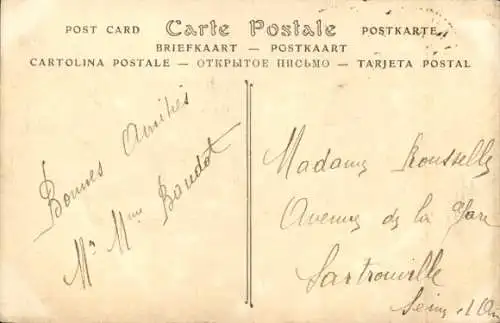 POST CARD Carte Postale POSTKARTE
BRIEFKAART — POSTKAART
CARTOLINA POSTALE — ОТКРЫТОЕ ПИСЬМО — TARJETA POSTAL
Bonnes Amitiés
Mr Mme Baudot
Madame Rousselle
Avenue de la Gare
Sartrouville
Seine et Oise